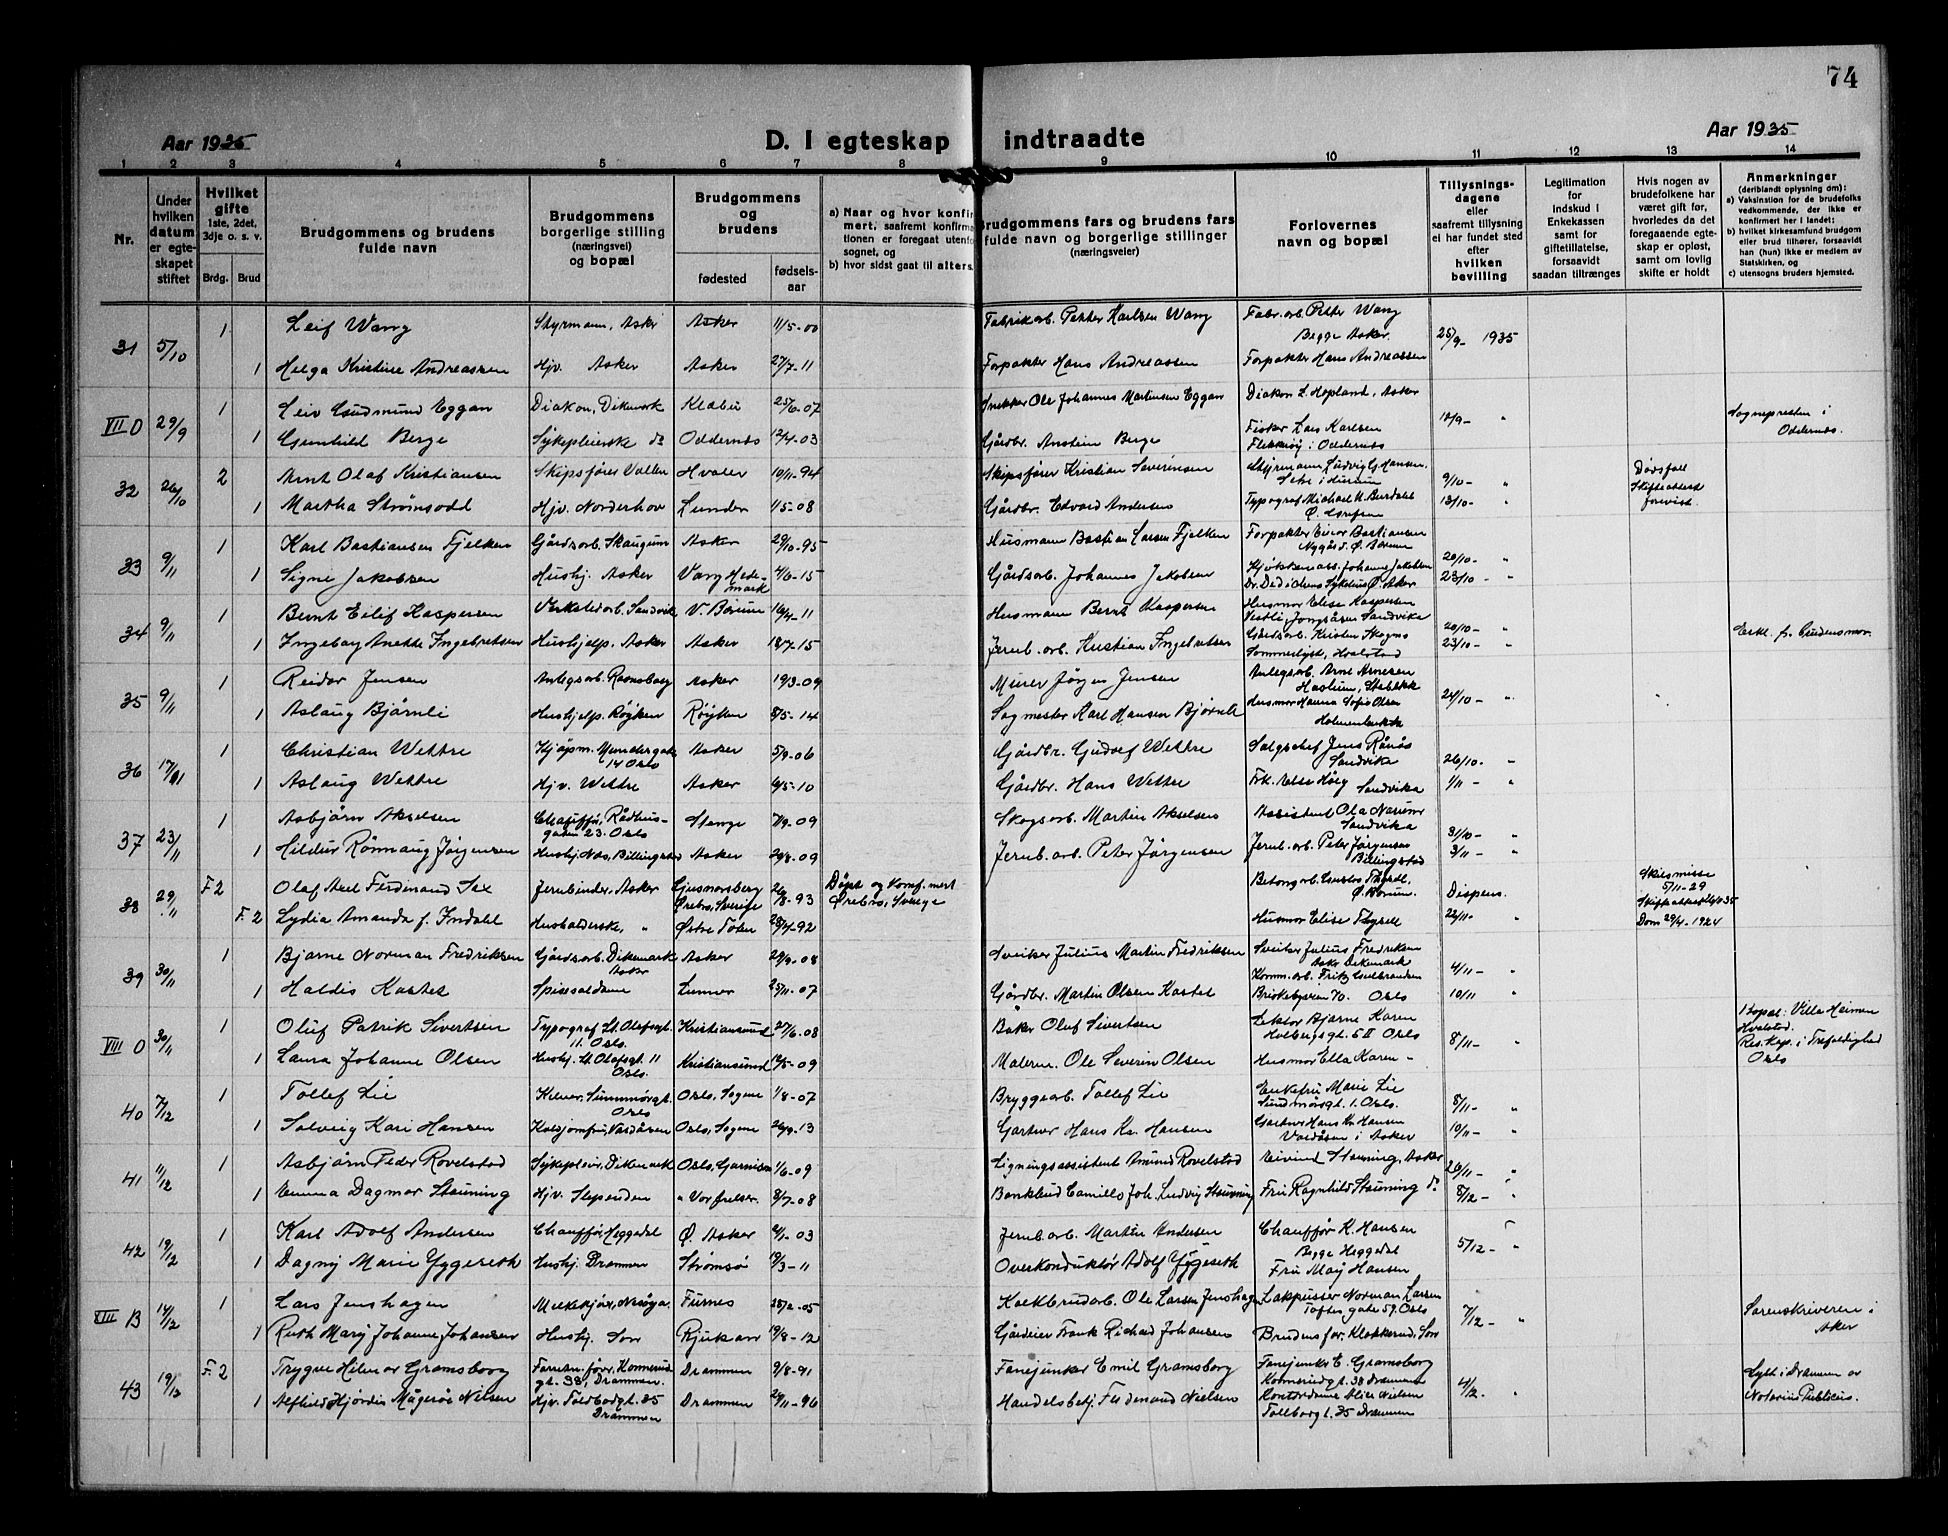 74
Aar 1935
D. I egteskap indtraadte
Aar 1935
1 2 3 4 5 6 7 8 9 10 11 12 13 14
Nr.
Under hvilken datum er egteskapet stiftet
Hvilket gifte 1ste, 2det, 3dje o. s. v.
Brdg. Brud
Brudgommens og brudens fulde navn
Brudgommens borgerlige stilling (næringsvei) og bopæl
Brudgommens og brudens
fødested
fødsels-aar
a) Naar og hvor konfir
mert, saafremt konfirma
tionen er foregaat utenfo
sognet, og
b) hvor sidst gaat til alters.
Brudgommens fars og brudens fars
fulde navn og borgerlige stillinger
(næringsveier)
Forlovernes
navn og bopæl
Tillysnings-
dagene
eller
saafremt tillysning
ei har fundet sted
efter
hvilken
bevilling
Legitimation
for
indskud i
Enkekassen
samt for
giftetillatelse,
forsaavidt
saadan tiltrænges
Hvis nogen av
brudefolkene har
været gift før,
hvorledes da det
foregaaende egte-
skap er opløst,
samt om lovlig
skifte er holdt
Anmerkninger
(deriblandt oplysning om):
a) Vaksination for de brudefolks
vedkommende, der ikke er
konfirmert her i landet;
b) hvilket kirkesamfund brudgom
eller brud tilhører, forsaavidt
han (hun) ikke er medlem av
Statskirken, og
c) utensogns bruders hjemsted.
31 5/10 1 Leif Wang Styrmann, Asker Asker 11/5-00 Fabrikarb. Petter Karlsen Wang Fabr.arb. Petter Wang
Begge Asker. 25/9- 1935
1 Helga Kristine Andreassen Hjv. Asker Asker 27/7-11 Forpakter Hans Andreassen Forpakter Hans Andreassen
VII O 29/9 1 Leiv Gudmund Eggan Diakon, Dikemark Klæbu 25/6-07 Snekker Ole Johannes Martinsen Eggan Diakon L. Hopland, Asker 10/9- " Sognepresten i
Oddernes.
1 Gunhild Berge Sykepleierske do Oddernes 12/4-03 Gårdbr. Anstein Berge Fisker Lars Karlsen
Flekkerøy i Oddernes
32 26/10 2 Arnt Olaf Kristiansen Skipsfører Vollen Hvaler 10/11-94 Skipsfører Kristian Severinsen Styrmann Ludvig G. Hansen.
Sætre i Hurum 9/10- " Dødsfall
Skifteattest
forevist.
1 Martha Strømsodd Hjv. Norderhov Lunder 1/5-08 Gårdbr. Edvard Andersen Typograf Michael M. Burdahl 13/10- "
33 9/11 1 Karl Bastiansen Fjelken Gårdsarb. Skaugum Asker 29/10-95 Husmann Bastian Larsen Fjelken Forpakter Einar Bastiansen
Nygård. Ø. Bærum
1 Signe Jakobsen Hushj. Asker Vang Hede-
mark 4/6-15 Gårdsarb. Johannes Jakobsen Kjøkkenass. Johanne Jakobsen 20/10- "
Dr. Dedichens Sykehus Ø. Aker 23/10- "
34 9/11 1 Bernt Eilif Kaspersen Verkstedarb. Sandvik V. Bærum 16/4-11 Husmann Bernt Kaspersen Husmor Elise Kaspersen
Vestli Jongsåsen Sandvika 20/10- " Erkl. fr. brudens mor.
1 Ingeborg Anette Ingebretsen Hushjelp. Asker Asker 18/7-15 Jernb. arb. Kristian Ingebretsen Gårdsarb. Kristen Skogmo 23/10- "
Sommerlyst, Hvalstad
35 9/11 1 Reidar Jensen Anlegsarb. Ravnsborg Asker 19/3-09 Murer Jørgen Jensen Anlegsarb. Arne Arnesen
Haslum, Stabekk 24/10- "
1 Aslaug Bjørnli Hushjelp. Røyken Røyken 8/5-14 Sagmester Karl Hansen Bjørnli Husmor Hanna Sofie Olsen
36 17/11 1 Christian Wettre Kjøpm. Munkergat.
14 Oslo Asker 5/9-06 Gårdbr. Gudolf Wettre Salgschef Jens Rånås
Sandvika 26/10- "
1 Aslaug Wettre Hjv. Wettre Asker 6/5-10 Gårdbr. Hans Wettre Frk. Else Høeg
Sandvika 1/11- "
37 23/11 1 Asbjørn Akselsen Chauffør, Rådhus-
gaten 23. Oslo Stange 7/9-09 Skogsarb. Martin Akselsen Assistent Ola Narum
Sandvika 31/10- "
1 Hildur Rønnaug Jørgensen Hushj. Næs, Billingstad Asker 29/8-09 Jernb. arb. Peter Jørgensen Jernb. arb. Peter Jørgensen
Billingstad 3/11- "
38 29/11 F. 2 Olaf Axel Ferdinand Sax Jernbinder, Asker Ljusnarsberg
Ørebro, Sverige 26/8-93 Døpt og konf.mert
Ørebro, Sverige Betongarb. Gustav Thysell,
Ø. Bærum Dispens. Skilsmisse
5/11-29
F. 2 Lydia Amanda f. Indahl Husholderske, " Østre Toten 28/4-92 Husmor Elise Thysell 22/11- " Dom 29/4-1924
39 30/11 1 Bjarne Norman Fredriksen Gårdsarb. Dikemark
Asker Asker 29/9-08 Sveiser Julius Martin Fredriksen Sveiser Julius Fredriksen
Asker Dikemark 4/11- "
Komm.arb. Fritz Gulbrandsen
1 Haldis Kastet Spisesaldame Lunner 25/11-07 Gårdbr. Martin Olsen Kastet Briskebyveien 70. Oslo 10/11 "
VIII O 30/11 1 Oluf Patrik Sivertsen Typograf St. Olafsgt.
11. Oslo. Kristiansund 27/6-08 Baker Oluf Sivertsen Lektor Bjarne Karen
Holbergsgt. 5 II Oslo 8/11- " Bopæl: Villa Heimen
Hvalstad.
Res. kap. i Trefoldighed
Oslo
1 Laura Johanne Olsen Hushj. St. Olafsgt. 11
Oslo. Kristiansund 12/5-09 Maleren. Ole Severin Olsen Husmor Ella Karen "
40 7/12 1 Tollef Lie Kelner, Sunnmørgt.
Oslo Oslo, Sagene 1/8-07 Bryggearb. Tollef Lie Enkefru Marie Lie
Sundmørsgt. 1. Oslo. 8/11- "
1 Solveig Kari Hansen Koldjomfru, Vardåsen Oslo, Sagene 26/9-13 Gartner Hans Kr. Hansen Gartner Hans Kr. Hansen
Vardåsen i Asker 10/11- "
41 11/12 1 Asbjørn Peder Rovelstad Sykepleier, Dikemark Oslo, Garnison 1/6-09 Ligningsassistent Amund Rovelstad Eivind Stauning, Asker 26/11- "
1 Emma Dagmar Stauning Hjv. Slependen " Vor frelser. 8/7-08 Bankbud Camillo Joh. Ludvig Stauning Fru Ragnhild Stauning do 8/12- "
42 19/12 1 Karl Adolf Andersen Chauffør, Heggedal Ø. Asker 9/1-03 Jernb. arb. Martin Andersen Chauffør K. Hansen
Begge Heggedal 5/12- "
1 Dagny Marie Yggeseth Hushj. Drammen Strømsø 19/3-11 Overkonduktør Adolf Yggeseth Fru Maij Hansen
VIII B 14/12 1 Lars Jenshagen Melkekjør, Nesøya. Furnes 18/2-05 Kalkbrudarb. Ole Larsen Jenshagen Lakpusser Norman Larsen
Toftes gate 59. Oslo 7/12- " Sorenskriveren i
Aker
1 Ruth Mary Johanne Johansen Hushj. Sem Rjukan 19/8-12 Gårdeier Frank Richard Johansen Brudens far, Klokkerud, Sem
43 19/12 F. 2 Trygve Hilmar Gramsborg Forretn.fører, Konnerud
gt. 38, Drammen. Drammen 9/8-91 Fanejunker Emil Gramsborg Fanejunker E. Gramsborg
Konnerudgt. 38 Drammen 4/12- " Lyst i Drammen av
Notarius Publicus.
1 Alfhild Hjørdis Mågerøe Nielsen Hjv. Toldbodgt. 35
Drammen Drammen 29/11-96 Handelsbetj. Ferdinand Nielsen Kontordame Alice Nielsen
Tollbodgt. 35 Drammen